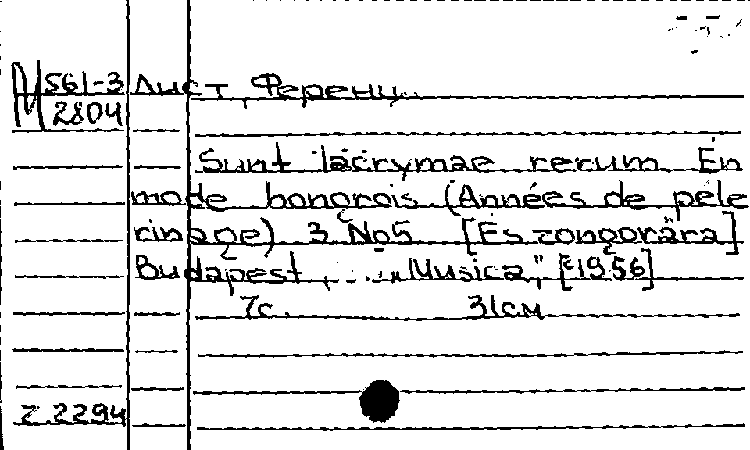 М 561-3
2804
Лист, Ференц.
Sunt lacrymae rerum En
mode hongrois (Années de péle
rinage) 3 No5 [Es zongorära]
Budapest, „Musica", [1956]
7с. 31см
Z.2294